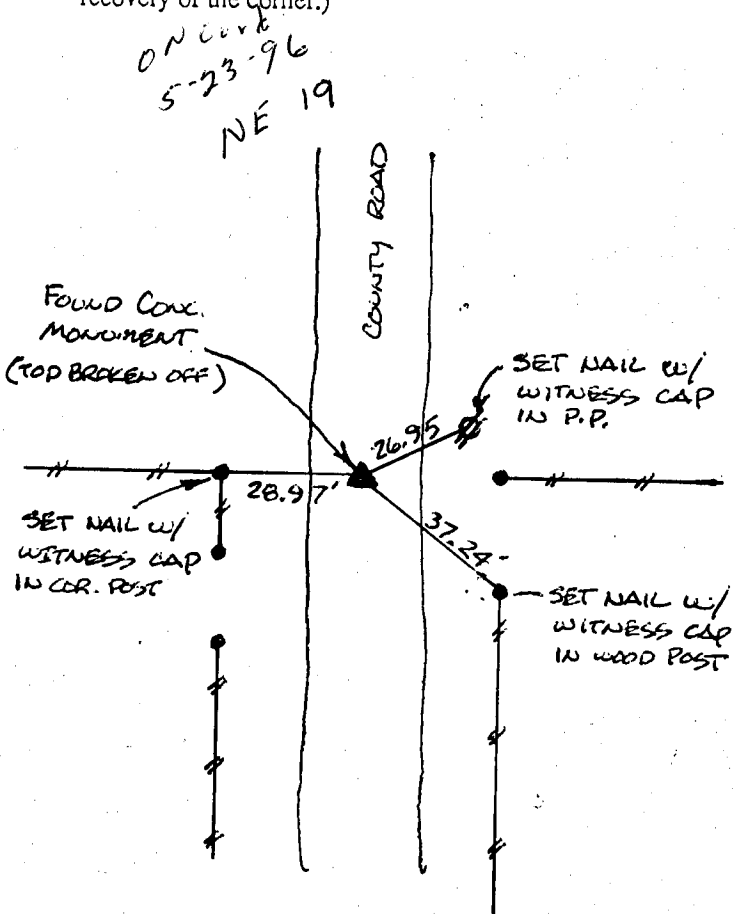 recovery of the corner.)
ON
5-23-96
NE 19
COUNTY ROAD
FOUND CONC.
MONUMENT
(TOP BROKEN OFF)
SET NAIL W/
WITNESS CAP
IN P.P.
26.95
28.97'
37.24
SET NAIL W/
WITNESS CAP
IN COR. POST
SET NAIL W/
WITNESS CAP
IN WOOD POST